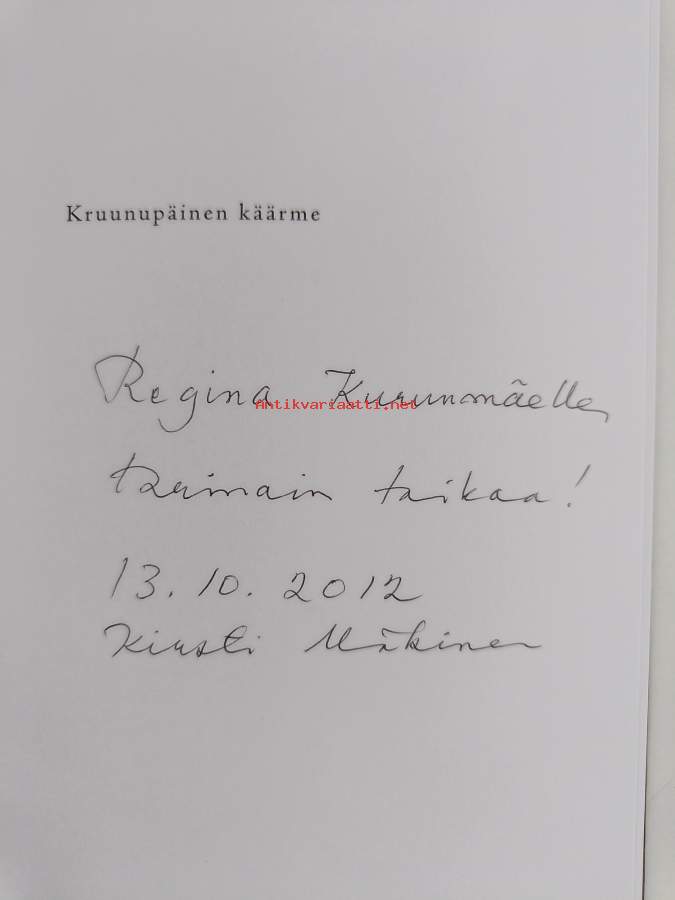 Kruunupäinen käärme
Regina Kurunmäelle,
Antikvariaatti.net
tarinain taikaa!
13.10.2012
Kirsti Mäkinen